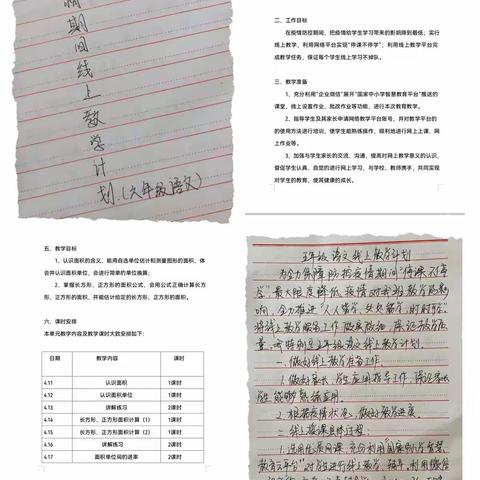 情
期
间
线
上
教
学
计
划.(六年级语文)
二、工作目标
在疫情防控期间，把疫情给学生学习带来的影响降到最低；实行
线上教学，利用网络平台实现“停课不停学”；利用线上教学平台完
成教学任务，保证每个学生线上学习不掉队。
三、教学准备
1、充分利用“企业微信”展开“国家中小学智慧教育平台”推送的
课堂，线上设置作业、批改作等功能，进行本次教育教学。
2、指导学生及其家长申请网络教学平台账号，并对教学平台的
的使用方法进行培训，使学生能熟练操作，顺利地进行网上上课、网
上作业等。
3、加强与学生家长的交流、沟通，提高对网上教学意义的认识，
督促学生认真、自觉的进行网上学习，与学校、教师携手，共同实现
对学生的教育，使其健康的成长。
五、教学目标
1、认识面积的含义，能用自选单位估计和测量图形的面积，体
会并认识面积单位，会进行简单的单位换算；
2、掌握长方形、正方形的面积公式，会用公式正确计算长方
形、正方形的面积，并能估计给定的长方形、正方形的面积。
六、课时安排
本单元教学内容及教学课时大致安排如下：
日期 教学内容 课时
4.11 认识面积 1课时
4.12 认识面积单位 1课时
4.13 讲解练习 2课时
4.14 长方形、正方形面积计算（1） 1课时
4.15 长方形、正方形面积计算（2） 1课时
4.16 讲解练习 2课时
4.17 面积单位间的进率 2课时
五年级语文线上教学计划
为全力保障防控疫情期间“停课不停
学”最大限度降低疫情对我班教学的影
响，全力推进“人人皆学、处处能学、时时可学”
将线上教学服务工作做周做细，保证教学质
量，特制定五年级语文线上教学计划。
一.做好线上教学准备工作.
1.做好家长、学生应用指导工作，保证家长
学生能够熟练应用.
2.根据疫情状态，做好教学进度.
二.线上授课具体过程：
1.选用优质网课，充分利用“国家中小学智慧
教育云平台”对学生进行线上教学、辅导，利用微信